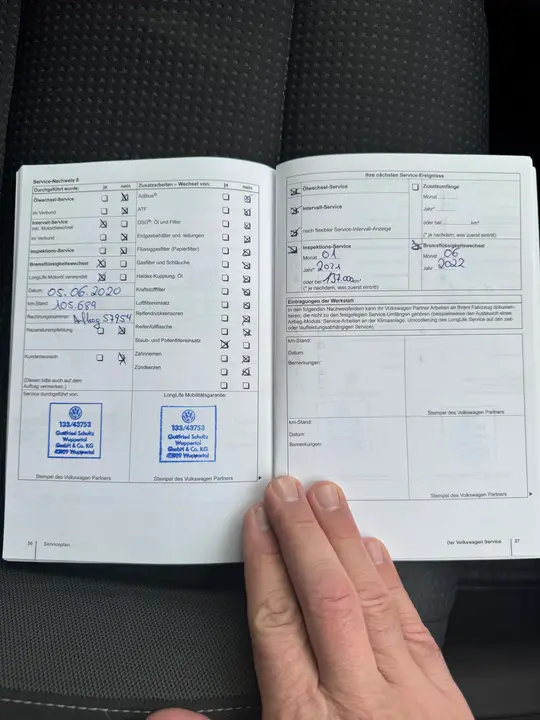 Service-Nachweis 8
Durchgeführt wurde: ja nein
Ölwechsel-Service
im Verbund
Intervall-Service
inkl. Motorölwechsel
im Verbund
Inspektions-Service
Bremsflüssigkeitswechsel
LongLife Motoröl verwendet
Datum: 05.06.2020
km-Stand: 105.689
Rechnungsnummer: Auftrag 57954
Reparaturempfehlung
Kundenwunsch
(Diesen bitte auch auf dem
Auftrag vermerken.)
Service durchgeführt von:
133/43753
Gottfried Schultz
Wuppertal
GmbH & Co. KG
42109 Wuppertal
Stempel des Volkswagen Partners
Zusatzarbeiten – Wechsel von: ja nein
AdBlue®
ATF
DSG®: Öl und Filter
Erdgasbehälter und -leitungen
Flüssiggasfilter (Papierfilter)
Gasfilter und Schläuche
Haldex-Kupplung, Öl
Kraftstofffilter
Luftfiltereinsatz
Reifendrucksensoren
Reifenfüllflasche
Staub- und Pollenfiltereinsatz
Zahnriemen
Zündkerzen
LongLife Mobilitätsgarantie:
133/43753
Gottfried Schultz
Wuppertal
GmbH & Co. KG
42109 Wuppertal
Stempel des Volkswagen Partners
36 Serviceplan
Ihre nächsten Service-Ereignisse
Ölwechsel-Service
Intervall-Service
nach flexibler Service-Intervall-Anzeige
Inspektions-Service
Monat 01
Jahr* 2021
oder bei 137.000 km*
(* je nachdem, was zuerst eintritt)
Zusatzumfänge
Monat
Jahr*
oder bei km*
(* je nachdem, was zuerst eintritt)
Bremsflüssigkeitswechsel
Monat 06
Jahr 2022
Eintragungen der Werkstatt
In den folgenden Nachweisfeldern kann Ihr Volkswagen Partner Arbeiten an Ihrem Fahrzeug dokumen-
tieren, die nicht zu den festgelegten Service-Umfängen gehören (beispielsweise den Austausch eines
Airbag-Moduls, Service-Arbeiten an der Klimaanlage, Umcodierung des LongLife Service auf den zeit-
oder laufleistungsabhängigen Service).
km-Stand:
Datum:
Bemerkungen:
Stempel des Volkswagen Partners
km-Stand:
Datum:
Bemerkungen:
Stempel des Volkswagen Partners
Der Volkswagen Service 37